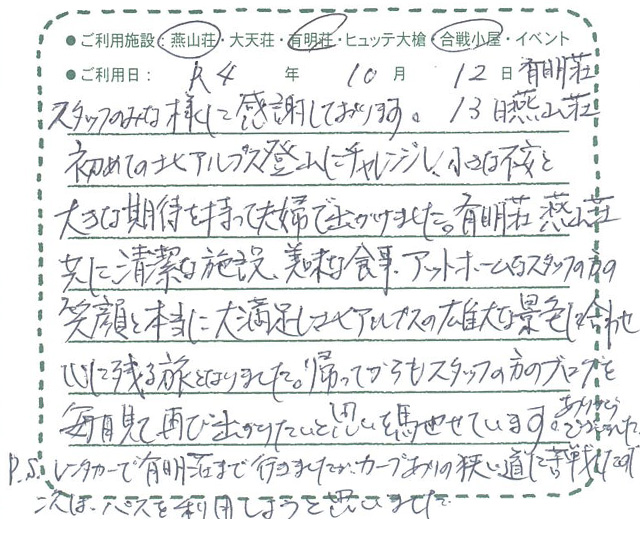 ● ご利用施設：燕山荘・大天荘・有明荘・ヒュッテ大槍・合戦小屋・イベント
● ご利用日： R4 年 10 月 12 日 有明荘
スタッフのみな様に感謝しております。 13日燕山荘
初めての北アルプス登山にチャレンジし、小さな不安と
大きな期待を持って夫婦で出かけました。有明荘 燕山荘
共に清潔な施設、美味な食事、アットホームなスタッフの方の
笑顔と本当に大満足し北アルプスの雄大な景色に合わせ
心に残る旅となりました。帰ってからもスタッフの方のブログを
毎日見て再び出かけたいと思いを馳せています。ありがとうございました。
P.S. レンタカーで有明荘まで行きましたが、カーブありの狭い道に苦戦したので
次は、バスを利用しようと思いました